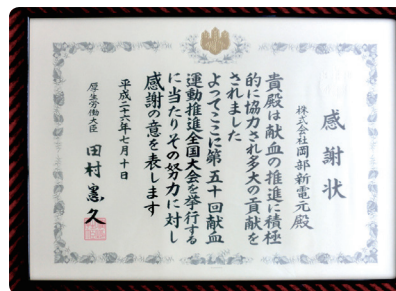 感謝状
株式会社岡部新電元殿
貴殿は献血の推進に積極
的に協力され多大の貢献を
されました
よってここに第五十回献血
運動推進全国大会を挙行する
に当たりその努力に対し
感謝の意を表します
平成二十六年七月十日
厚生労働大臣 田村憲久